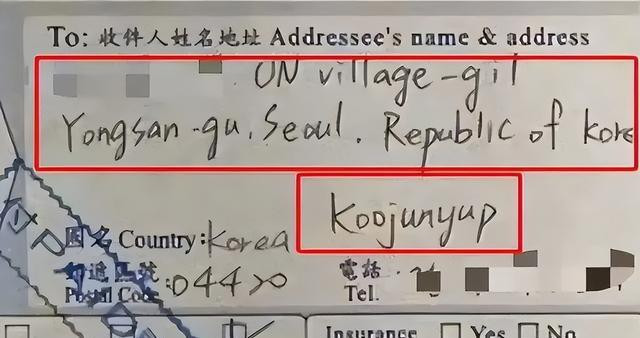 To: 收件人姓名地址 Addressee's name & address
UN village-gil
Yongsan-gu, Seoul. Republic of Kore
Koojunyup
國名 Country: Korea
郵遞區號 電話
Postal Code: 04420 Tel.
Insurance Yes No